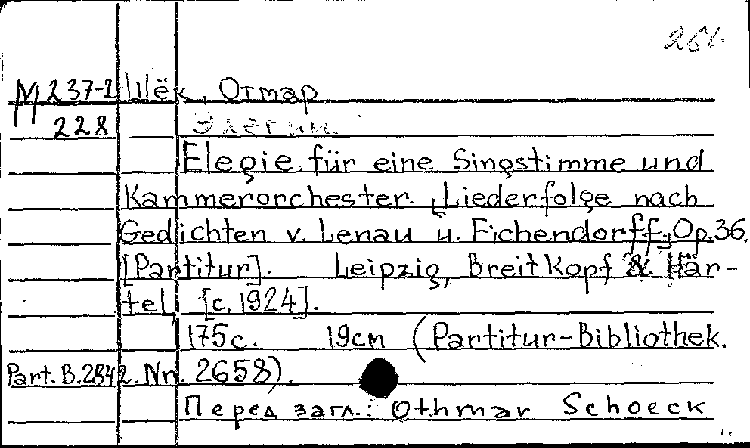 261.
М 237-2 Шёк, Отмар
228 Элегии.
Elegie für eine Singstimme und
Kammerorchester. Liederfolge nach
Gedichten v. Lenau u. Eichendorff, Op. 36.
[Partitur]. Leipzig, Breitkopf & Här-
tel, [c. 1924].
175 с. 19 см (Partitur-Bibliothek.
Part. B. 2842. Nr. 2658).
Перед загл.: Othmar Schoeck